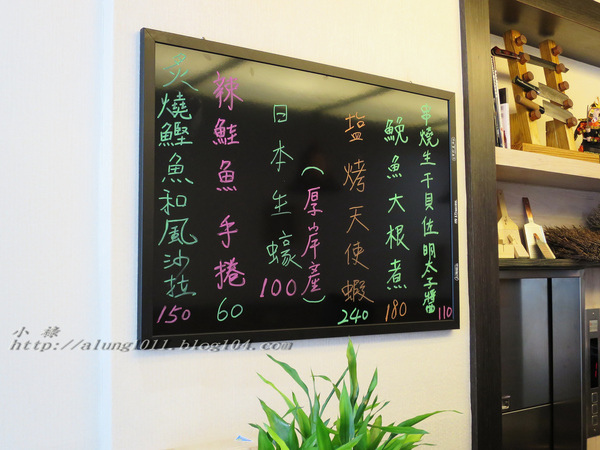 串燒生干貝佐明太子醬
110
鮸魚大根煮
180
塩烤天使蝦
240
日本生蠔
(厚岸產)
100
辣鮭魚手捲
60
炙燒鰹魚和風沙拉
150
小祿
http://alung1011.blog104.com